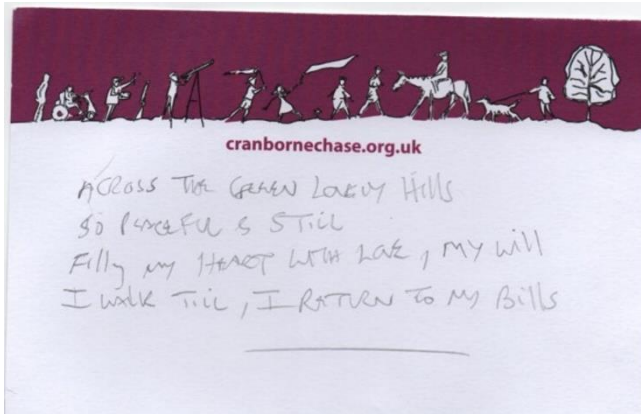 cranbornechase.org.uk
ACROSS THE GREEN LOVELY Hills
SO PEACEFUL & STILL
Filly my HEART WITH LOVE, MY Will
I WALK TILL, I RETURN TO MY Bills